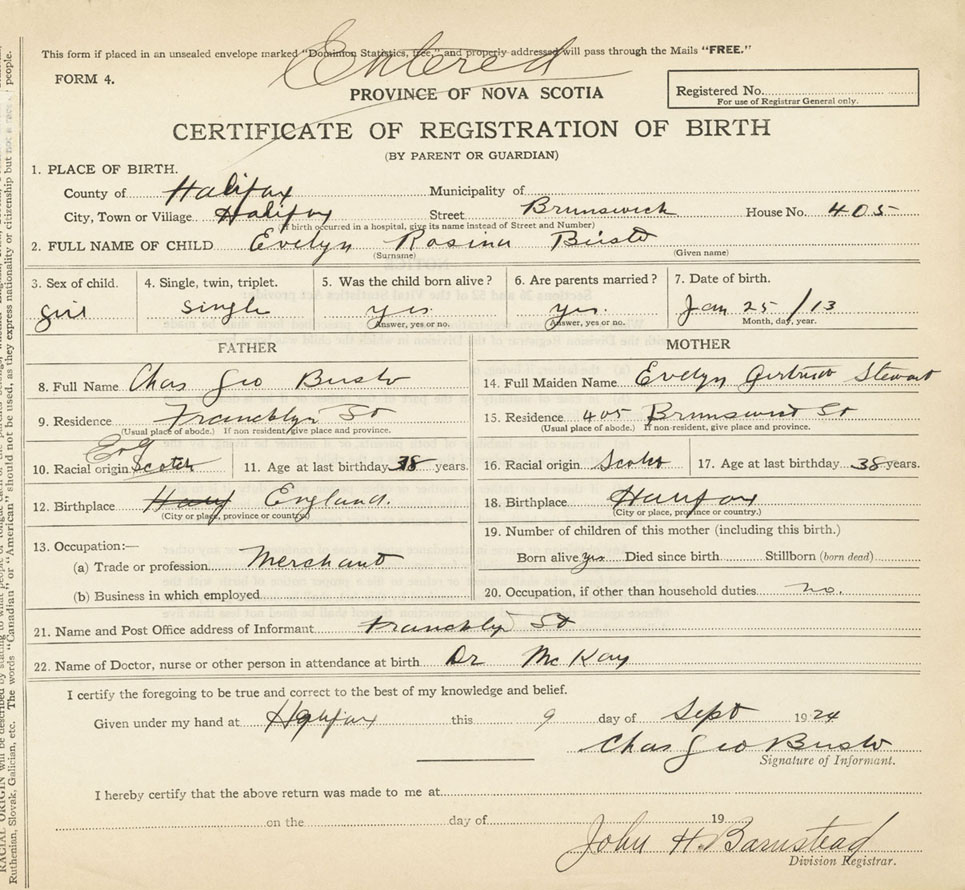 This form if placed in an unsealed envelope marked "Dominion Statistics, free," and properly addressed will pass through the Mails "FREE."
Entered
FORM 4.
PROVINCE OF NOVA SCOTIA
Registered No.
For use of Registrar General only.
CERTIFICATE OF REGISTRATION OF BIRTH
(BY PARENT OR GUARDIAN)
1. PLACE OF BIRTH.
County of Halifax Municipality of
City, Town or Village Halifax Street Brunswick House No. 405
(If birth occurred in a hospital, give its name instead of Street and Number)
2. FULL NAME OF CHILD Evelyn Rosina
(Surname) (Given name)
3. Sex of child. 4. Single, twin, triplet. 5. Was the child born alive? 6. Are parents married? 7. Date of birth.
girl single yes. yes. Jan 25 /13
Answer, yes or no. Answer, yes or no. Month, day, year.
FATHER MOTHER
8. Full Name Chas Geo 14. Full Maiden Name Evelyn Gertrude Stewart
9. Residence Francklyn St 15. Residence 405 Brunswick St
(Usual place of abode.) If non resident, give place and province. (Usual place of abode.) If non-resident, give place and province.
Eng
10. Racial origin Scotch 11. Age at last birthday 38 years. 16. Racial origin Scotch 17. Age at last birthday 38 years.
12. Birthplace England. 18. Birthplace Halifax
(City or place, province or country) (City or place, province or country.)
19. Number of children of this mother (including this birth.)
13. Occupation:—
(a) Trade or profession Merchant Born alive yes Died since birth Stillborn (born dead)
(b) Business in which employed 20. Occupation, if other than household duties no.
21. Name and Post Office address of Informant Francklyn St
22. Name of Doctor, nurse or other person in attendance at birth Dr McKay
I certify the foregoing to be true and correct to the best of my knowledge and belief.
Given under my hand at Halifax this 9 day of Sept 1924
Chas Geo
Signature of Informant.
I hereby certify that the above return was made to me at
on the day of 19
John H. Barnstead
Division Registrar.
people.
Ruthenian, Slovak, Galician, etc. The words "Canadian" or "American" should not be used, as they express nationality or citizenship but